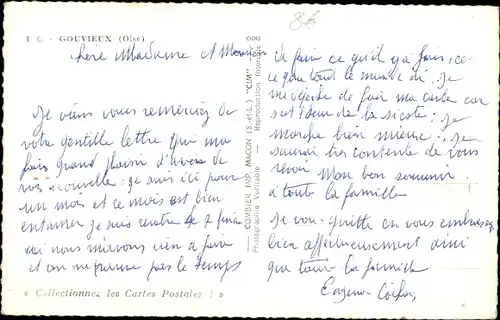 1 C - GOUVIEUX (Oise)
8€
Chère Madame et Monsieur
Je viens vous remerciez de
votre gentille lettre qui ma
fais grand plaisir d'avoir de
vos nouvelle: je suis ici pour
un mois et ce mois est bien
entamer je suis rentre le 7
ici nous navons rien a faire
et on ne prenne pas le temps
« Collectionnez les Cartes Postales ! »
COMBIER IMP. MACON (S.-et-L.) "CIM"
Photographie Véritable - Reproduction Interdite
de fair ce qu'il y a fair, ce
ce que tout le monde di. Je
me depeche de fair ma carte car
set leur de la sieste; Je
marche bien mieux; Je
saurai tres contente de vous
revoir Mon bon souvenir
a toute la famille
Je vou quitte en vous embrassan
bien affectueusement ainsi
que toute la famille